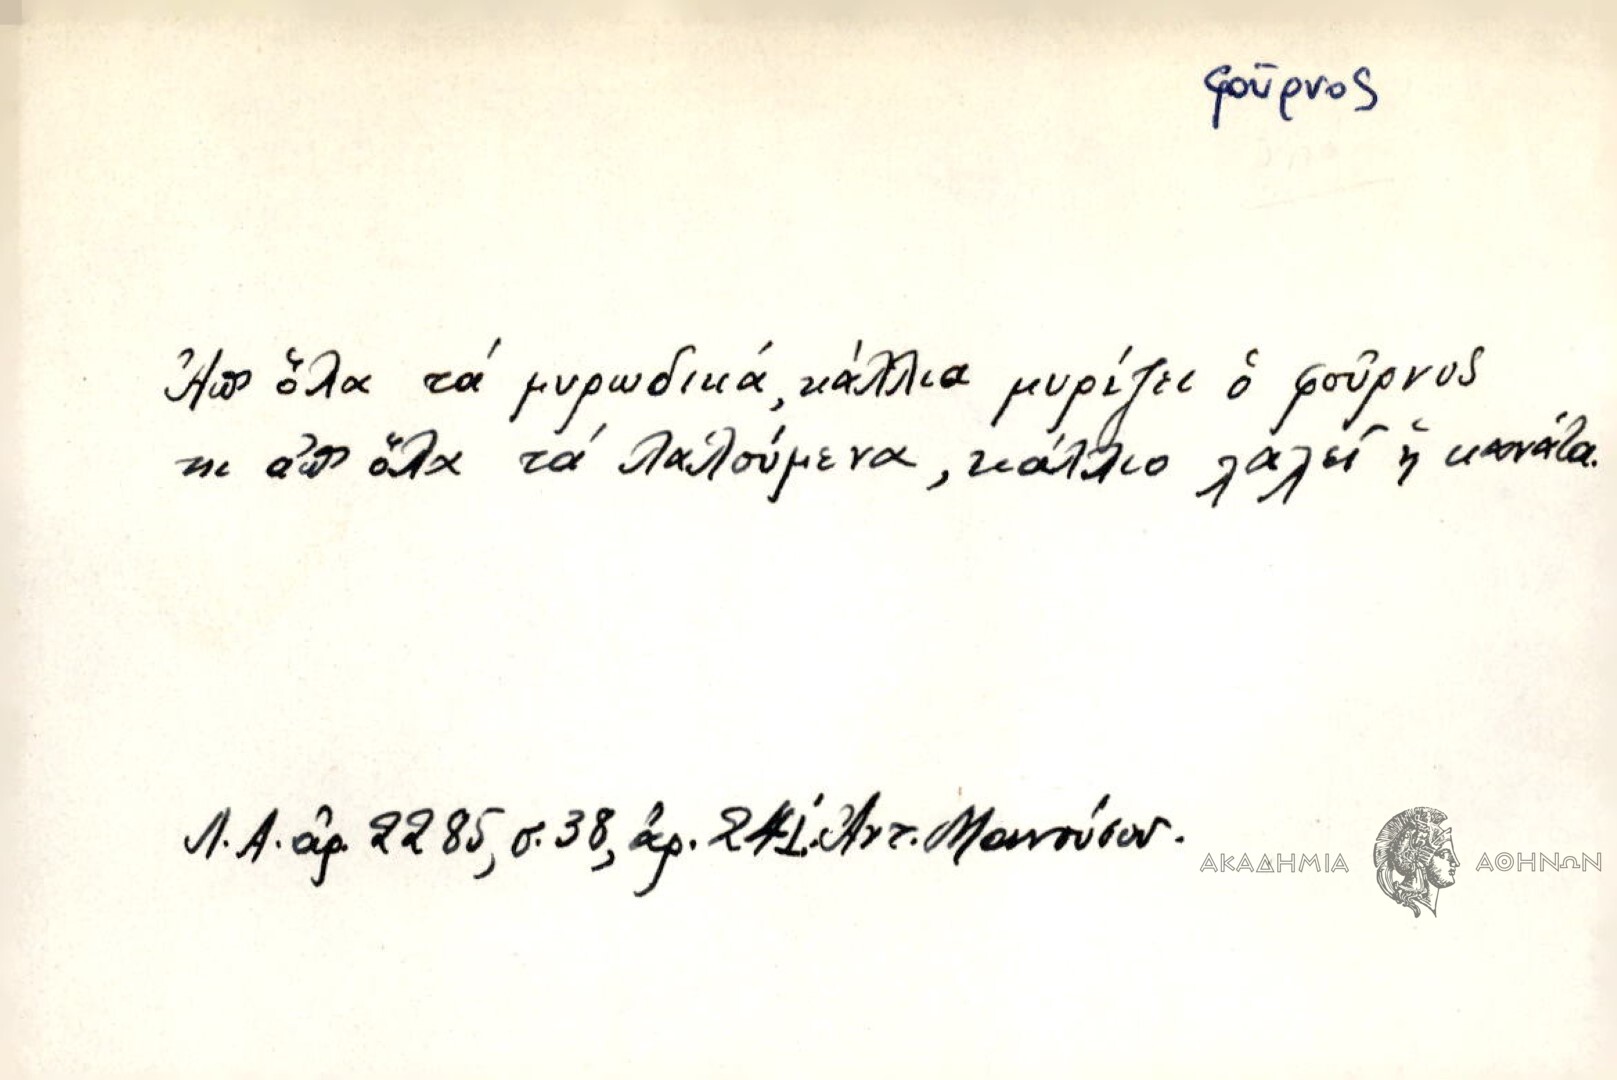 φοῦρνος
Ἀπ' ὅλα τά μυρωδικά, κάλλια μυρίζει ὁ φοῦρνος
κι ἀπ' ὅλα τά λαλούμενα, κάλλιο λαλεῖ ἡ κανάτα.
Λ.Α. ἀρ. 2285, σ. 38, ἀρ. 241. Ἀντ. Μανούσου.
ΑΚΑΔΗΜΙΑ ΑΘΗΝΩΝ